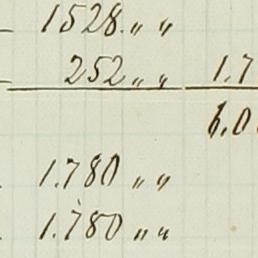 1528. " "
252 " " 1.7
6.0
1.780 " "
1.780 " "